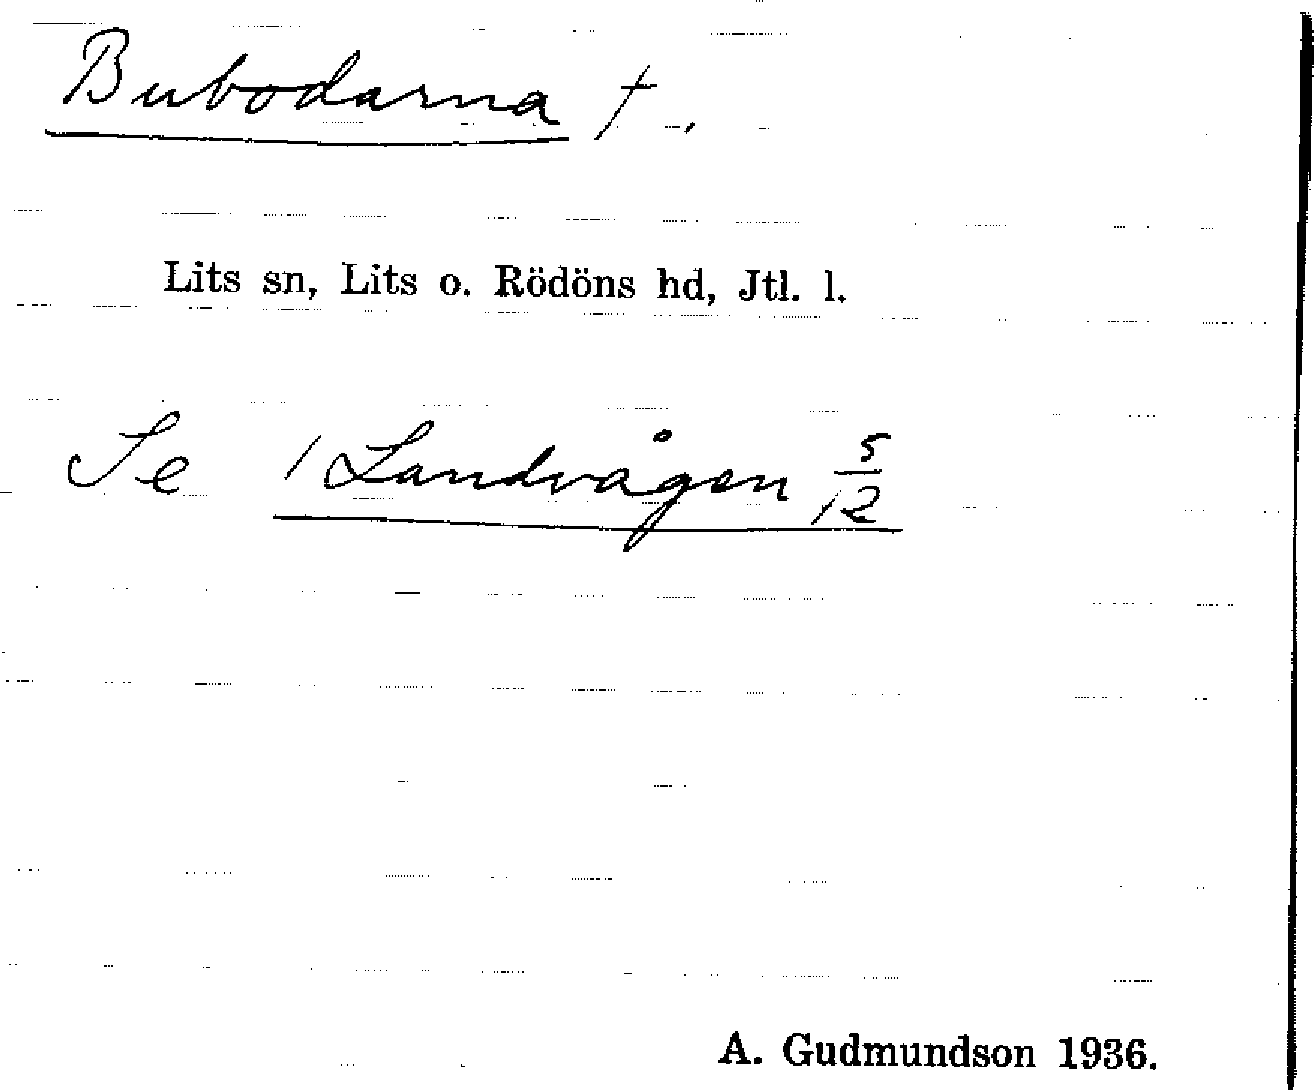 Bubodarna †.
Lits sn, Lits o. Rödöns hd, Jtl. l.
Se / Landvågen 5/12
A. Gudmundson 1936.